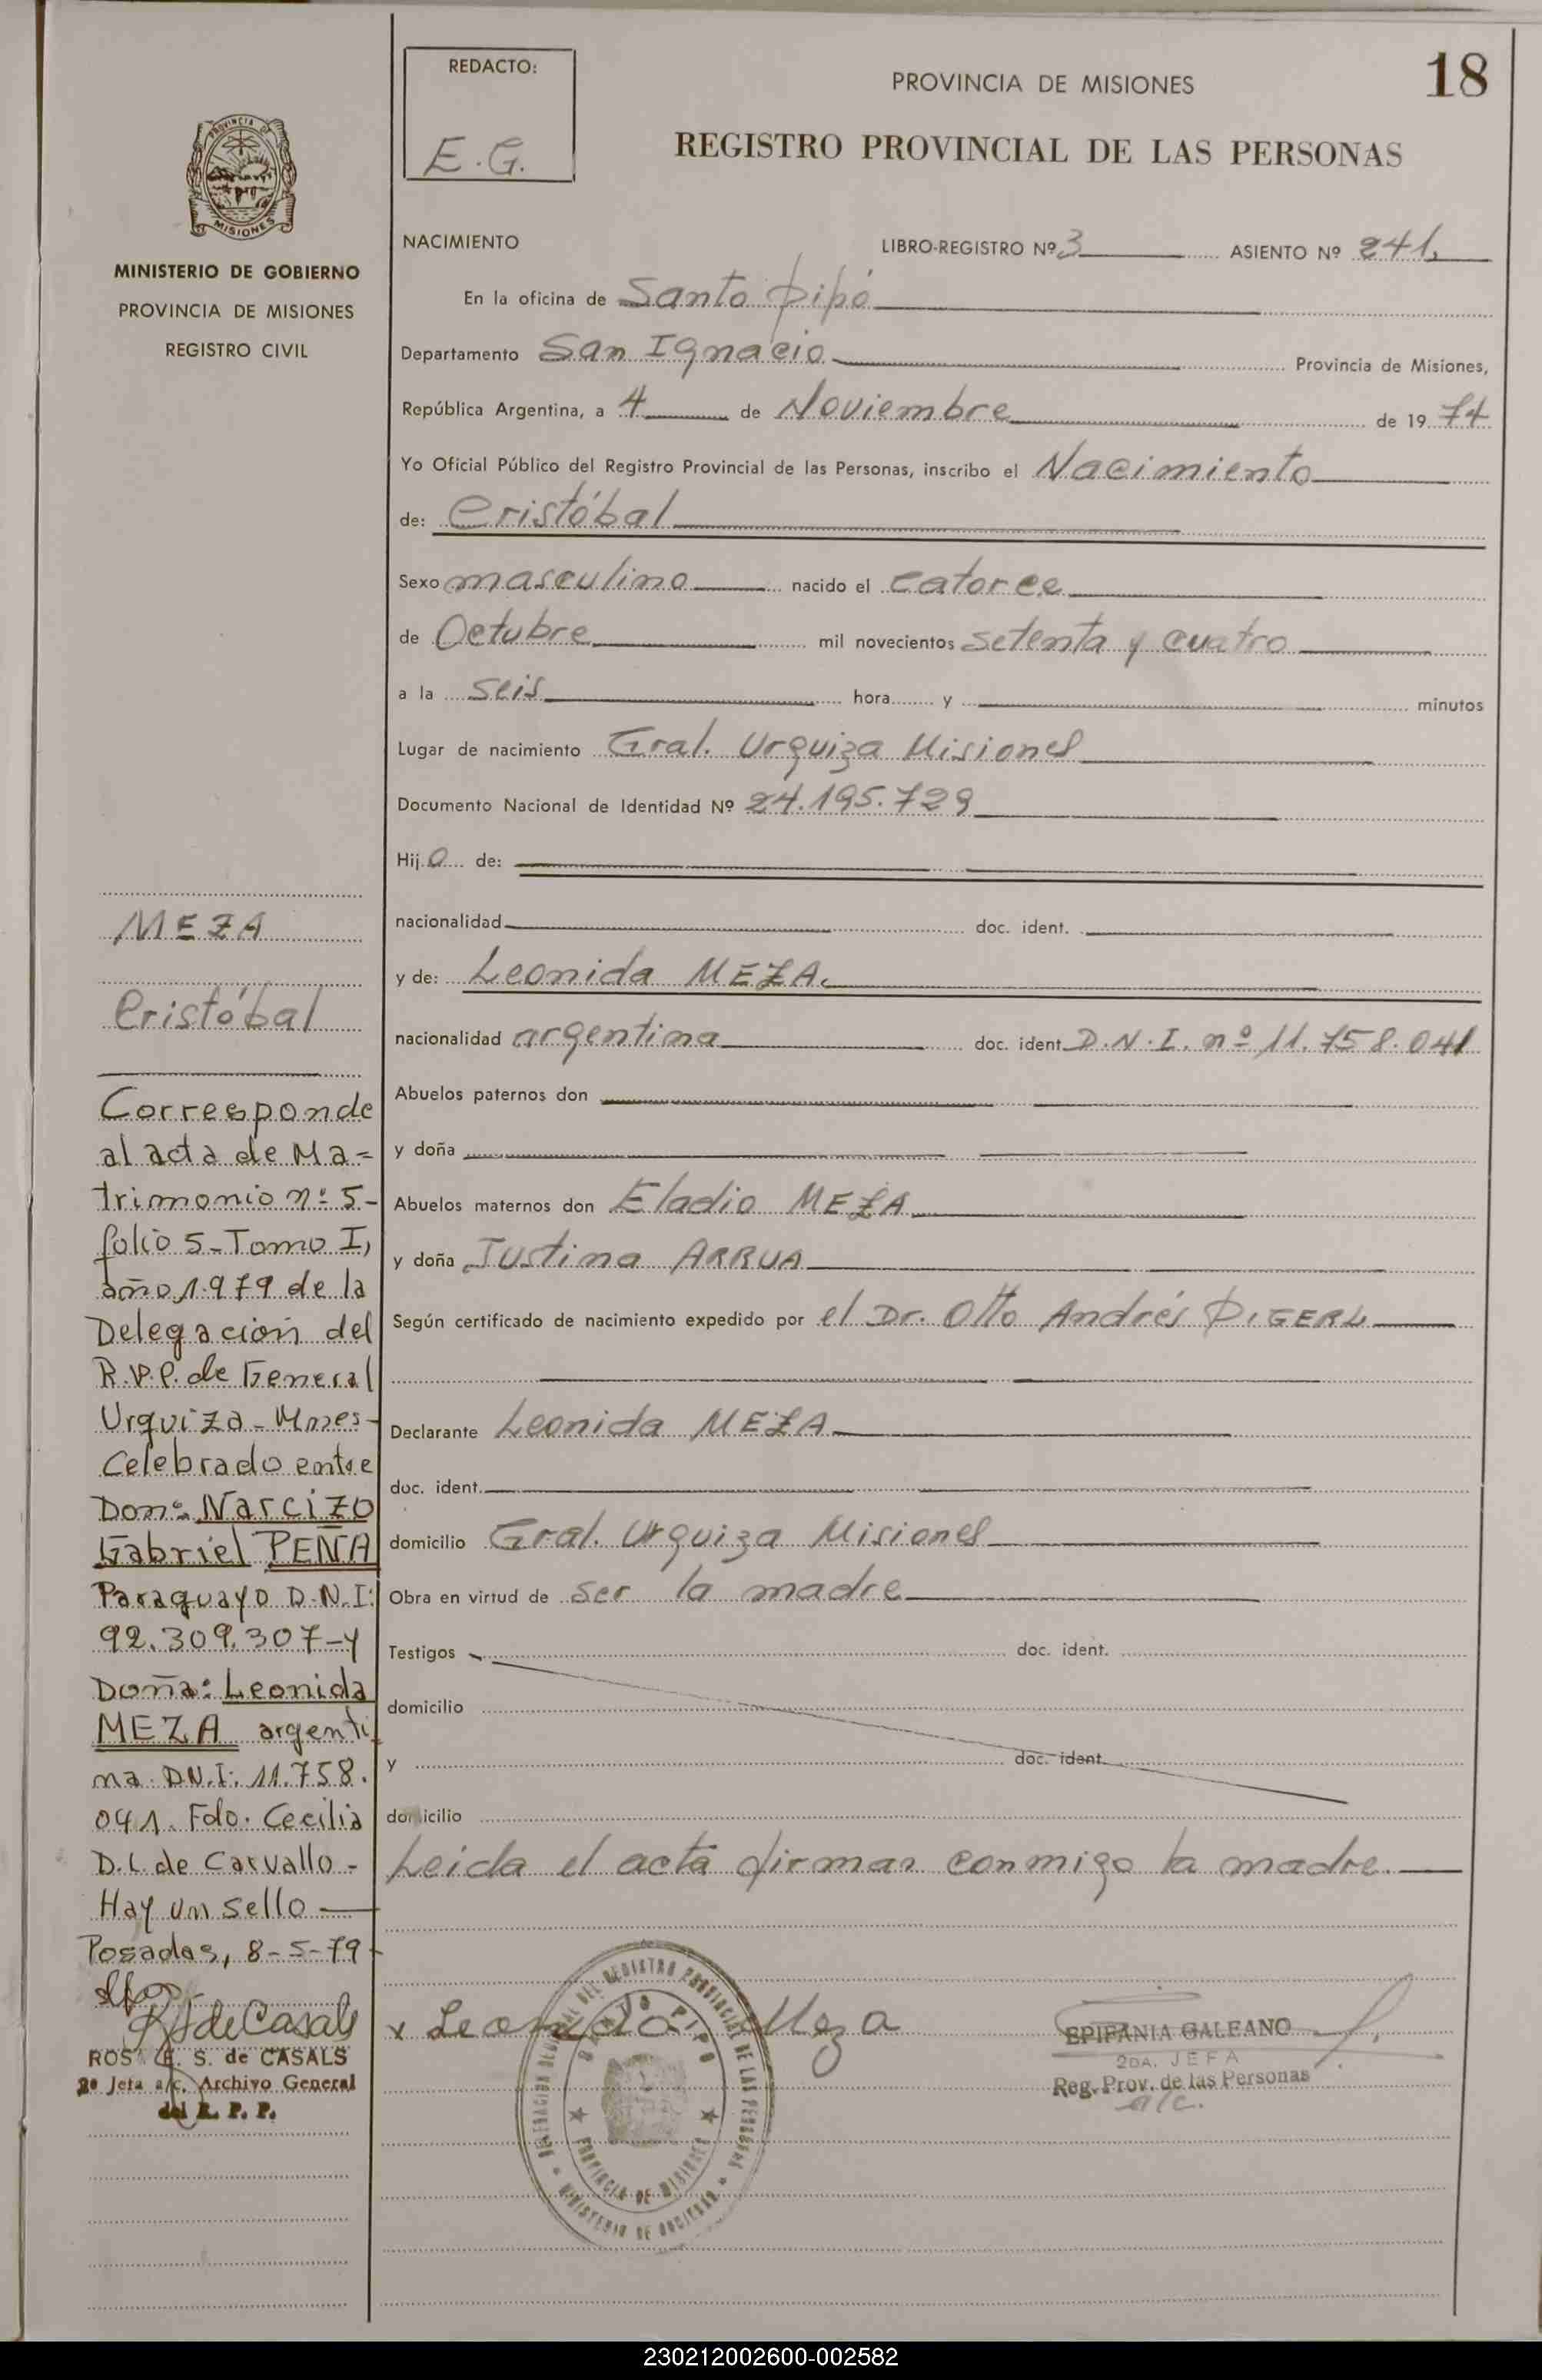 18
REDACTO:
E.G.
PROVINCIA DE MISIONES
REGISTRO PROVINCIAL DE LAS PERSONAS
PROVINCIA DE
MISIONES
MINISTERIO DE GOBIERNO
PROVINCIA DE MISIONES
REGISTRO CIVIL
NACIMIENTO LIBRO-REGISTRO Nº 3 ASIENTO Nº 241.
En la oficina de Santo Pipó
Departamento San Ignacio Provincia de Misiones,
República Argentina, a 4 de Noviembre de 19 74
Yo Oficial Público del Registro Provincial de las Personas, inscribo el Nacimiento
de: Cristóbal
Sexo masculino nacido el catorce
de Octubre mil novecientos setenta y cuatro
a la seis hora y minutos
Lugar de nacimiento Gral. Urquiza Misiones
Documento Nacional de Identidad Nº 24.195.729
Hij o de:
nacionalidad doc. ident.
y de: Leonida MEZA.
nacionalidad argentina doc. ident. D.N.I. nº 11.758.041
Abuelos paternos don
y doña
Abuelos maternos don Eladio MEZA
y doña Justina ARRUA
Según certificado de nacimiento expedido por el Dr. Otto Andrés PIGERL
Declarante Leonida MEZA
doc. ident.
domicilio Gral. Urquiza Misiones
Obra en virtud de ser la madre
Testigos doc. ident.
domicilio
y doc. ident.
domicilio
Leida el acta firman conmigo la madre.
x Leonida Meza
EPIFANIA GALEANO
2DA. JEFA
Reg. Prov. de las Personas
a/c.
SANTO PIPO
PROVINCIA DE MISIONES
MEZA
Cristóbal
Corresponde
al acta de Ma=
trimonio nº 5-
folio 5-Tomo I,
año 1.979 de la
Delegación del
R.P.P. de General
Urquiza-Mnes-
Celebrado entre
Don: Narcizo
Gabriel PEÑA
Paraguayo D.N.I:
92.309.307-y
Doña: Leonida
MEZA argenti
na. D.N.I: 11.758.
041. Fdo. Cecilia
D.L. de Carvallo-
Hay un sello
Posadas, 8-5-79-
ROSA E. S. de CASALS
2º Jefa a/c. Archivo General
del R. P. P.
230212002600-002582